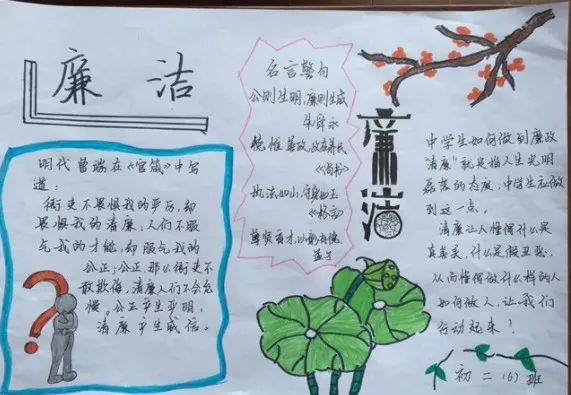 廉洁
明代曾端在《官箴》中写
道:
衙吏不畏惧我的严厉,却
畏惧我的清廉,人们不服
气我的才能,却服气我的
公正;公正那么衙吏不
敢欺侮,清廉人们不会怠
慢。公正产生严明,
清廉产生威信。
名言警句
公则生明,廉则生威
朱舜水
德惟善政,政在养民
《尚书》
执法如山,守身如玉
《格言》
尊贤
廉洁
中学生如何做到廉政
清廉"就是指人生光明
磊落的态度,中学生应做
到这一点。
清廉让人懂得什么是
真善美,什么是假丑恶,
从而懂得做什么样的人
如何做人,让我们
行动起来!
初二(6)班